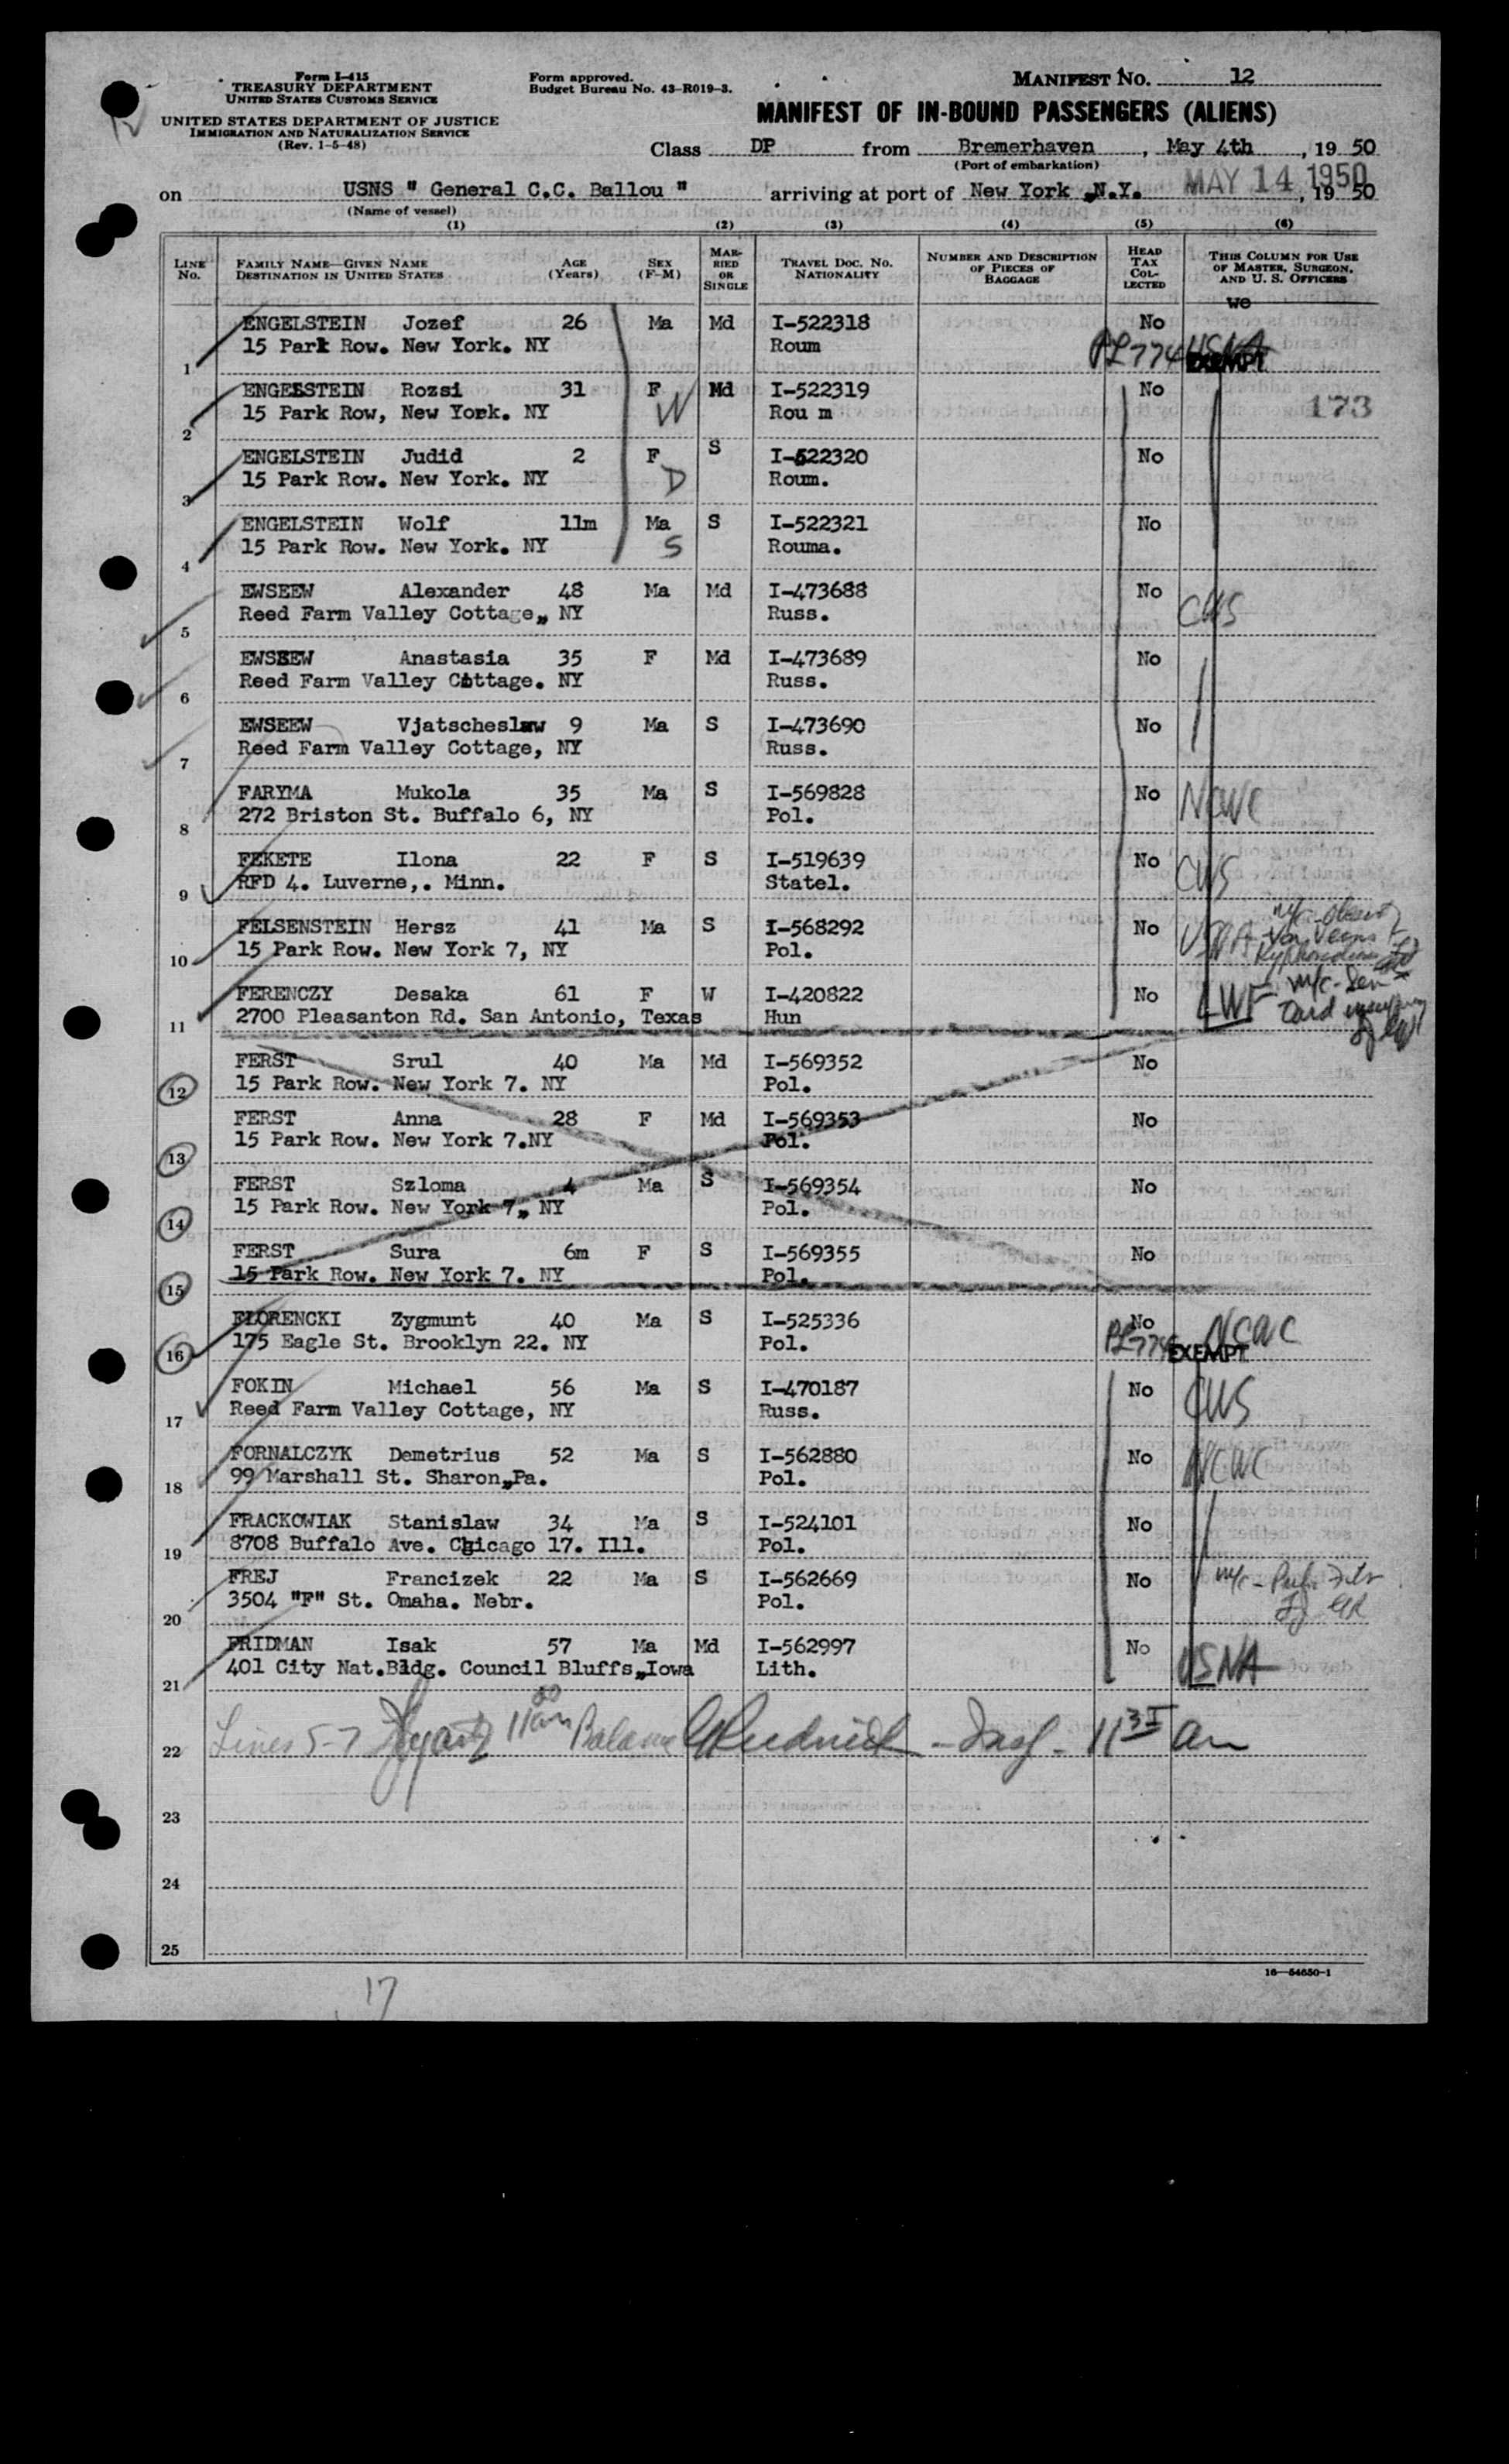 Form I-415
TREASURY DEPARTMENT
UNITED STATES CUSTOMS SERVICE
UNITED STATES DEPARTMENT OF JUSTICE
IMMIGRATION AND NATURALIZATION SERVICE
(Rev. 1-5-48)
Form approved.
Budget Bureau No. 43-R019-3.
MANIFEST NO. 12
MANIFEST OF IN-BOUND PASSENGERS (ALIENS)
Class DP from Bremerhaven, May 4th, 19 50
(Port of embarkation)
on USNS " General C.C. Ballou " arriving at port of New York ,N.Y. MAY 14 1950, 19 50
(Name of vessel)
(1) (2) (3) (4) (5) (6)
LINE No. FAMILY NAME—GIVEN NAME DESTINATION IN UNITED STATES AGE (Years) SEX (F-M) MARRIED OR SINGLE TRAVEL DOC. NO. NATIONALITY NUMBER AND DESCRIPTION OF PIECES OF BAGGAGE HEAD TAX COLLECTED THIS COLUMN FOR USE OF MASTER, SURGEON, AND U. S. OFFICERS
ENGELSTEIN Jozef 26 Ma Md I-522318 No
1 15 Park Row. New York. NY Roum PL774 USNA EXEMPT
ENGELSTEIN Rozsi 31 F Md I-522319 No
2 15 Park Row, New York. NY W Rou m 173
ENGELSTEIN Judid 2 F S I-522320 No
3 15 Park Row. New York. NY D Roum.
ENGELSTEIN Wolf 11m Ma S I-522321 No
4 15 Park Row. New York. NY S Rouma.
EWSEEW Alexander 48 Ma Md I-473688 No
5 Reed Farm Valley Cottage,, NY Russ. CWS
EWSEEW Anastasia 35 F Md I-473689 No
6 Reed Farm Valley Cottage. NY Russ.
EWSEEW Vjatscheslaw 9 Ma S I-473690 No
7 Reed Farm Valley Cottage, NY Russ.
FARYMA Mukola 35 Ma S I-569828 No NCWC
8 272 Briston St. Buffalo 6, NY Pol.
FEKETE Ilona 22 F S I-519639 No CWS
9 RFD 4. Luverne,. Minn. Statel.
FELSENSTEIN Hersz 41 Ma S I-568292 No USNA
10 15 Park Row. New York 7, NY Pol.
FERENCZY Desaka 61 F W I-420822 No LWF m/c - Sen
11 2700 Pleasanton Rd. San Antonio, Texas Hun
FERST Srul 40 Ma Md I-569352 No
12 15 Park Row. New York 7. NY Pol.
FERST Anna 28 F Md I-569353 No
13 15 Park Row. New York 7.NY Pol.
FERST Szloma 4 Ma S I-569354 No
14 15 Park Row. New York 7,, NY Pol.
FERST Sura 6m F S I-569355 No
15 15 Park Row. New York 7. NY Pol.
FLORENCKI Zygmunt 40 Ma S I-525336 No NCWC
16 175 Eagle St. Brooklyn 22. NY Pol. PL774 EXEMPT
FOKIN Michael 56 Ma S I-470187 No CWS
17 Reed Farm Valley Cottage, NY Russ.
FORNALCZYK Demetrius 52 Ma S I-562880 No NCWC
18 99 Marshall St. Sharon,,Pa. Pol.
FRACKOWIAK Stanislaw 34 Ma S I-524101 No
19 8708 Buffalo Ave. Chicago 17. Ill. Pol.
FREJ Francizek 22 Ma S I-562669 No
20 3504 "F" St. Omaha. Nebr. Pol.
FRIDMAN Isak 57 Ma Md I-562997 No
21 401 City Nat.Bldg. Council Bluffs,,Iowa Lith. USNA
22 Lines 5-7 Balance - Insp - 11
23
24
25
16—54650-1
17